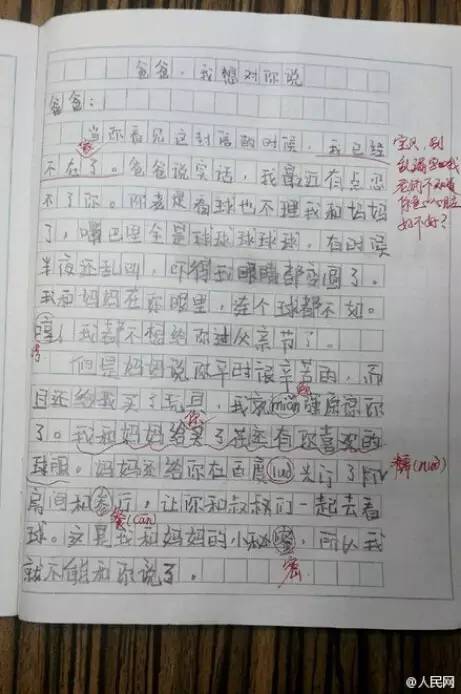 爸爸，我想对你说
爸爸：
当你看见这封信的时候，我已经
不在了。爸爸说实话，我最近有点忍
不了你。你老是看球也不理我和妈妈
了，嘴巴里全是球球球球球，有时候
半夜还乱叫，吓得我眼睛都变圆了。
我和妈妈在你眼里，连个球都不如。
哼！我都不想给你过父亲节了。
但是妈妈说你平时很辛苦的，而
且还给我买了玩具，我就miǎn强原谅你
了。我和妈妈给买了花还有你喜欢的
球服。妈妈还给你在百度luò米订了
房间和餐厅，让你和叔叔们一起去看
球。这是我和妈妈的小秘，所以我
就不能和你说了。
宝贝，别
老师不
好不好？
你
糯(nuò)
餐(cān)
密
@人民网